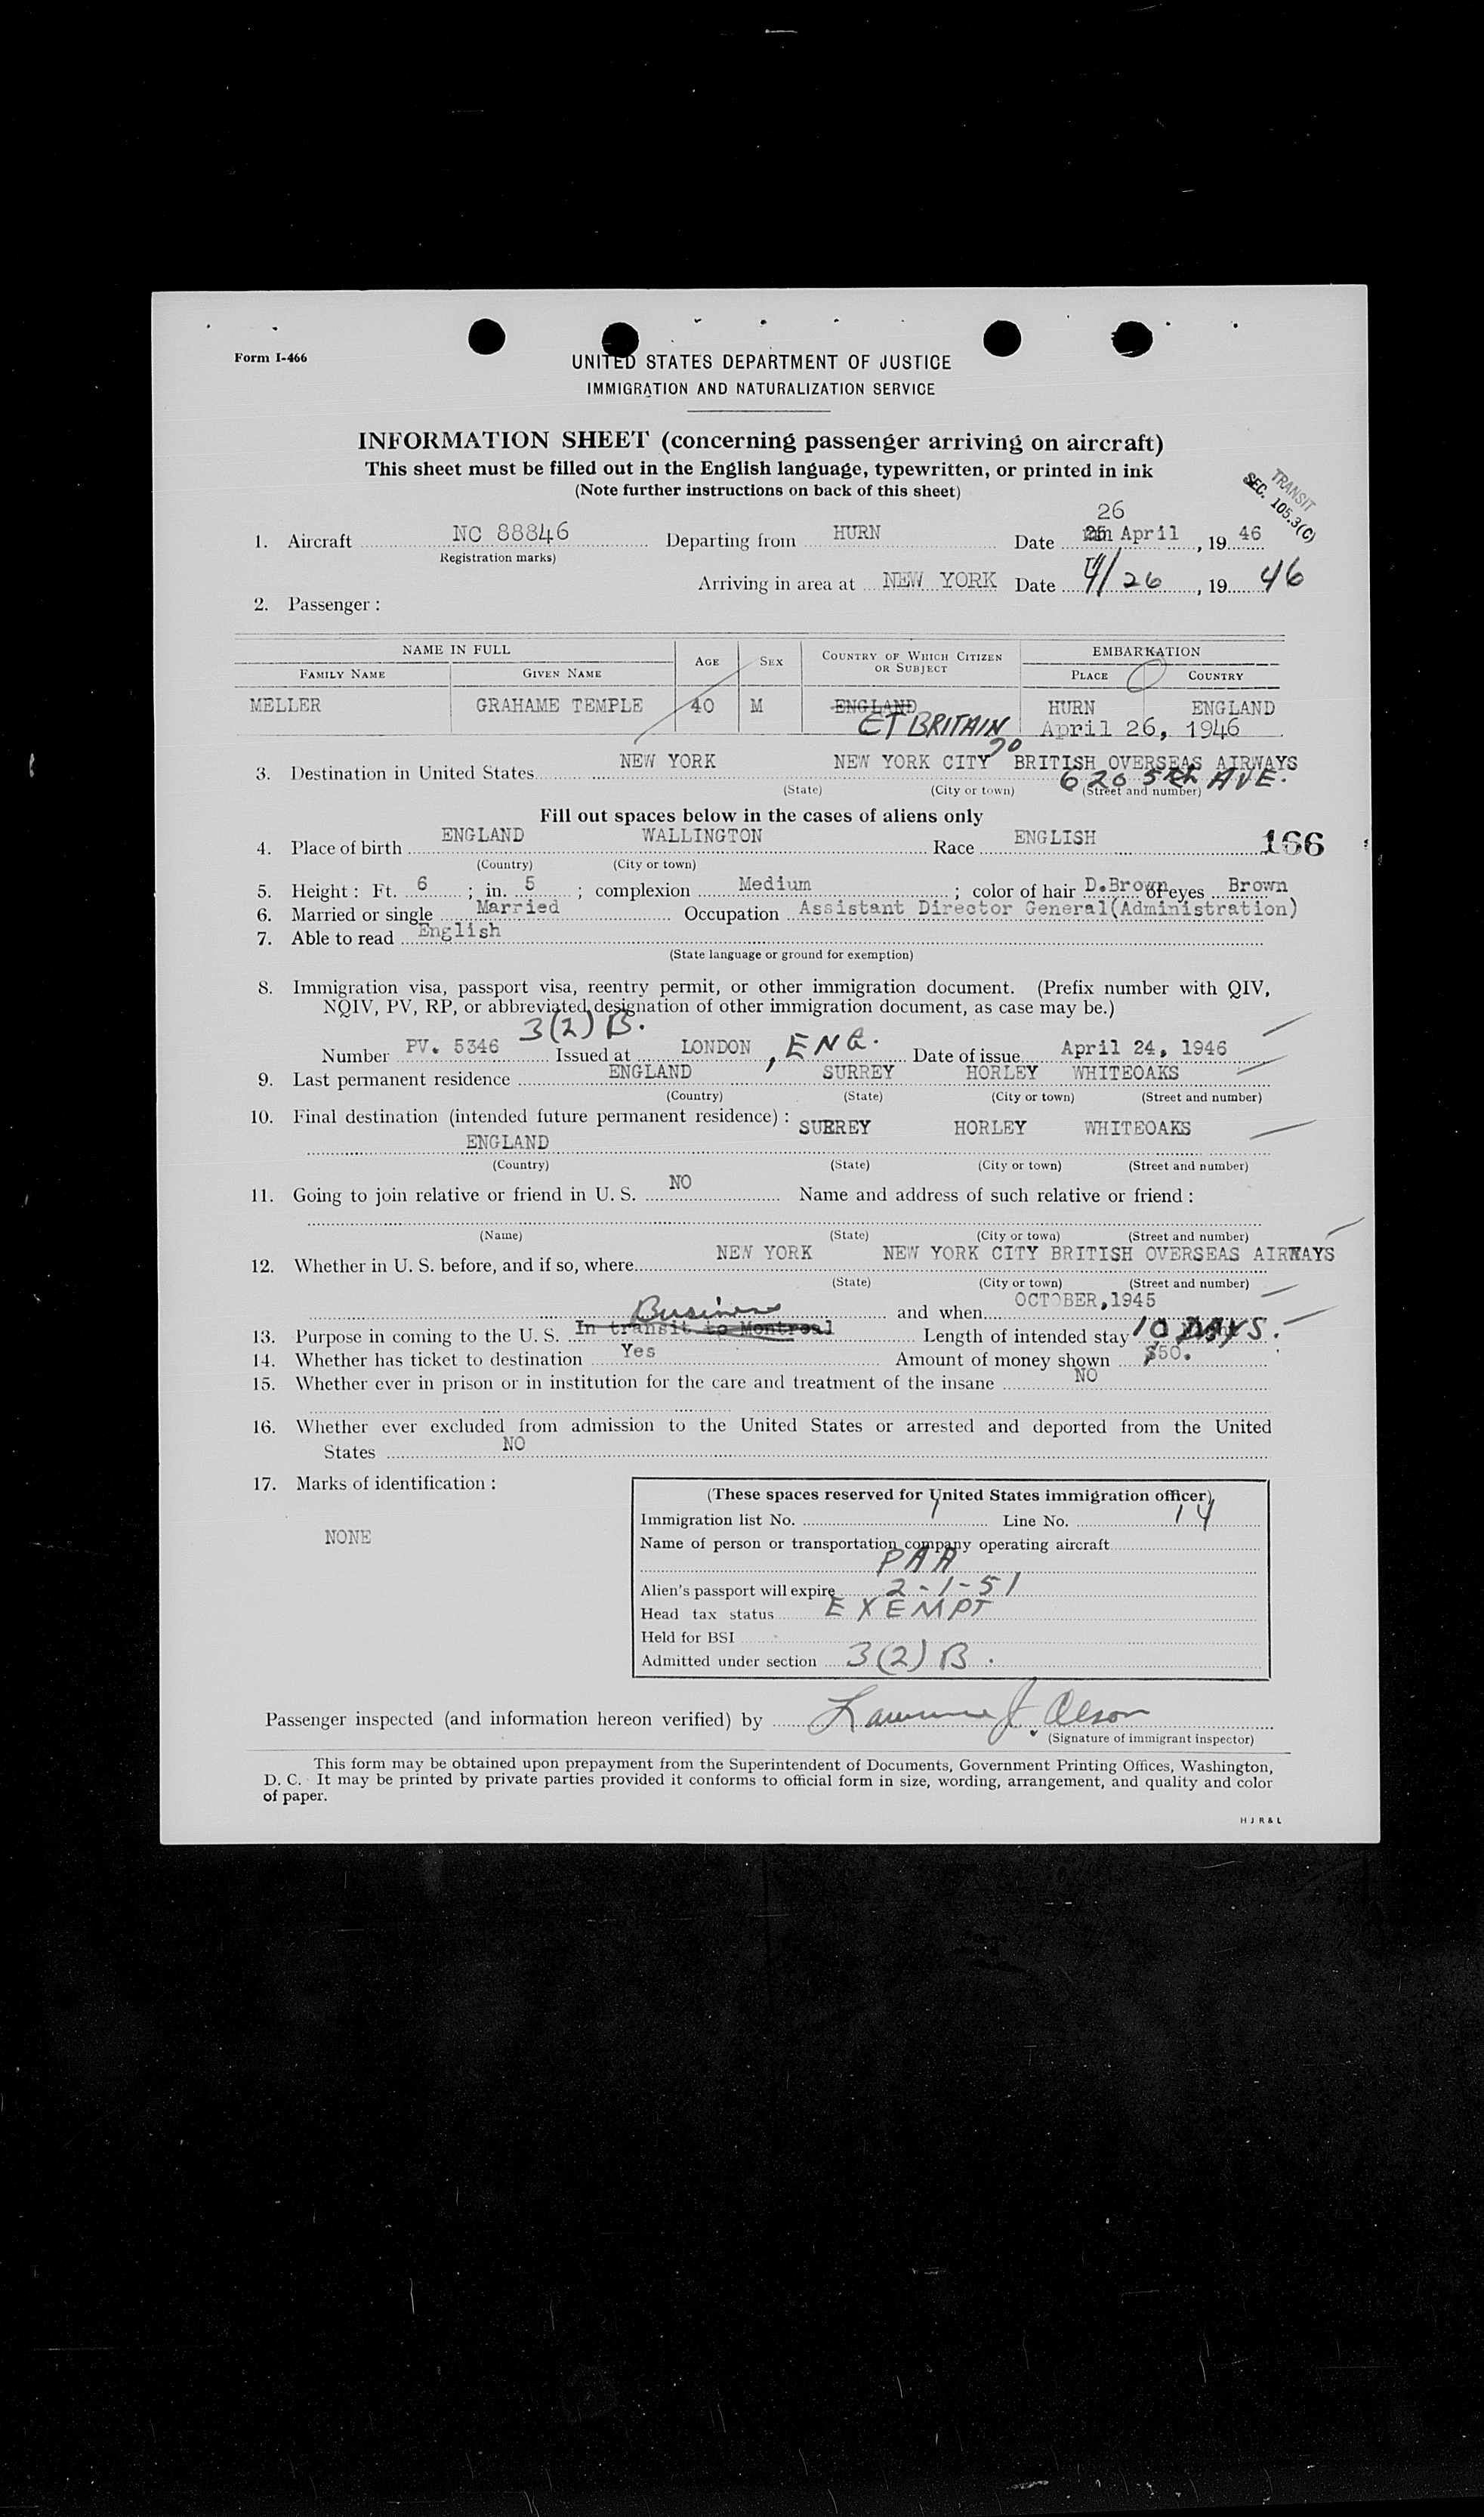 Form I-466
UNITED STATES DEPARTMENT OF JUSTICE
IMMIGRATION AND NATURALIZATION SERVICE
INFORMATION SHEET (concerning passenger arriving on aircraft)
This sheet must be filled out in the English language, typewritten, or printed in ink
(Note further instructions on back of this sheet)
TRANSIT
SEC. 105.3(C)
26
1. Aircraft NC 88846 Departing from HURN Date April, 19 46
(Registration marks)
Arriving in area at NEW YORK Date 4/26, 19 46
2. Passenger :
NAME IN FULL AGE SEX COUNTRY OF WHICH CITIZEN OR SUBJECT EMBARKATION
FAMILY NAME GIVEN NAME PLACE COUNTRY
MELLER GRAHAME TEMPLE 40 M ENGLAND HURN ENGLAND
GT BRITAIN April 26, 1946
3. Destination in United States NEW YORK NEW YORK CITY % BRITISH OVERSEAS AIRWAYS
620 5th AVE.
(State) (City or town) (Street and number)
Fill out spaces below in the cases of aliens only
4. Place of birth ENGLAND WALLINGTON Race ENGLISH 166
(Country) (City or town)
5. Height : Ft. 6 ; in. 5 ; complexion Medium ; color of hair D.Brown of eyes Brown
6. Married or single Married Occupation Assistant Director General(Administration)
7. Able to read English
(State language or ground for exemption)
8. Immigration visa, passport visa, reentry permit, or other immigration document. (Prefix number with QIV,
NQIV, PV, RP, or abbreviated designation of other immigration document, as case may be.)
3(2) B.
Number PV. 5346 Issued at LONDON, ENG. Date of issue April 24, 1946
9. Last permanent residence ENGLAND SURREY HORLEY WHITEOAKS
(Country) (State) (City or town) (Street and number)
10. Final destination (intended future permanent residence) : SURREY HORLEY WHITEOAKS
ENGLAND
(Country) (State) (City or town) (Street and number)
11. Going to join relative or friend in U. S. NO Name and address of such relative or friend :
(Name) (State) (City or town) (Street and number)
12. Whether in U. S. before, and if so, where NEW YORK NEW YORK CITY BRITISH OVERSEAS AIRWAYS
(State) (City or town) (Street and number)
Business and when OCTOBER,1945
13. Purpose in coming to the U. S. In transit to Montreal Length of intended stay 10 DAYS.
14. Whether has ticket to destination Yes Amount of money shown $50.
15. Whether ever in prison or in institution for the care and treatment of the insane NO
16. Whether ever excluded from admission to the United States or arrested and deported from the United
States NO
17. Marks of identification :
NONE
(These spaces reserved for United States immigration officer)
Immigration list No. 1 Line No. 14
Name of person or transportation company operating aircraft
PAA
Alien's passport will expire 2-1-51
Head tax status EXEMPT
Held for BSI
Admitted under section 3(2) B.
Passenger inspected (and information hereon verified) by Lawrence J. Olson
(Signature of immigrant inspector)
This form may be obtained upon prepayment from the Superintendent of Documents, Government Printing Offices, Washington,
D. C. It may be printed by private parties provided it conforms to official form in size, wording, arrangement, and quality and color
of paper.
H J R & L